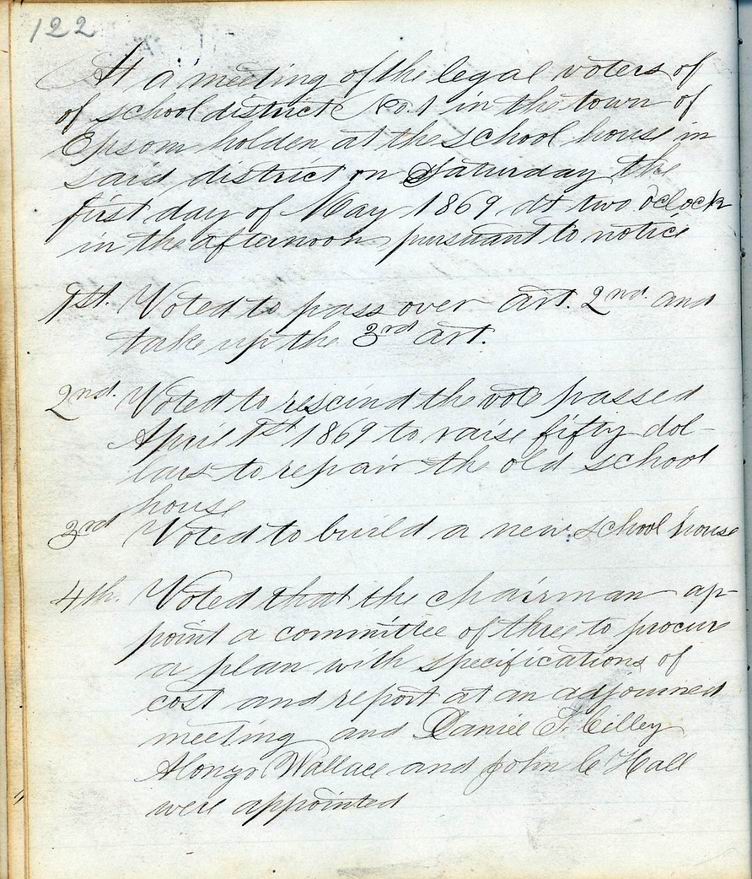 122
At a meeting of the legal voters of
of school district No. 1 in the town of
Epsom holden at the school house in
said district on Saturday the
first day of May 1869 at two oclock
in the afternoon pursuant to notice
1st. Voted to pass over art. 2nd. and
take up the 3rd art.
2nd. Voted to rescind the vote passed
April 1st 1869 to raise fifty dol-
lars to repair the old school
house
3rd Voted to build a new school house
4th. Voted that the chairman ap-
point a committee of three to procure
a plan with specifications of
cost and report at an adjourned
meeting and Daniel T. Cilley
Alongo Wallace and John C Hall
were appointed